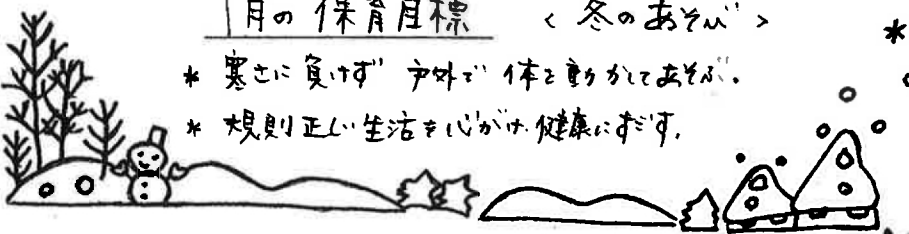 1月の保育目標 <冬のあそび>
* 寒さに負けず 戸外で 体を動かしてあそぶ。
* 規則正しい生活を心がけ、健康にすごす。